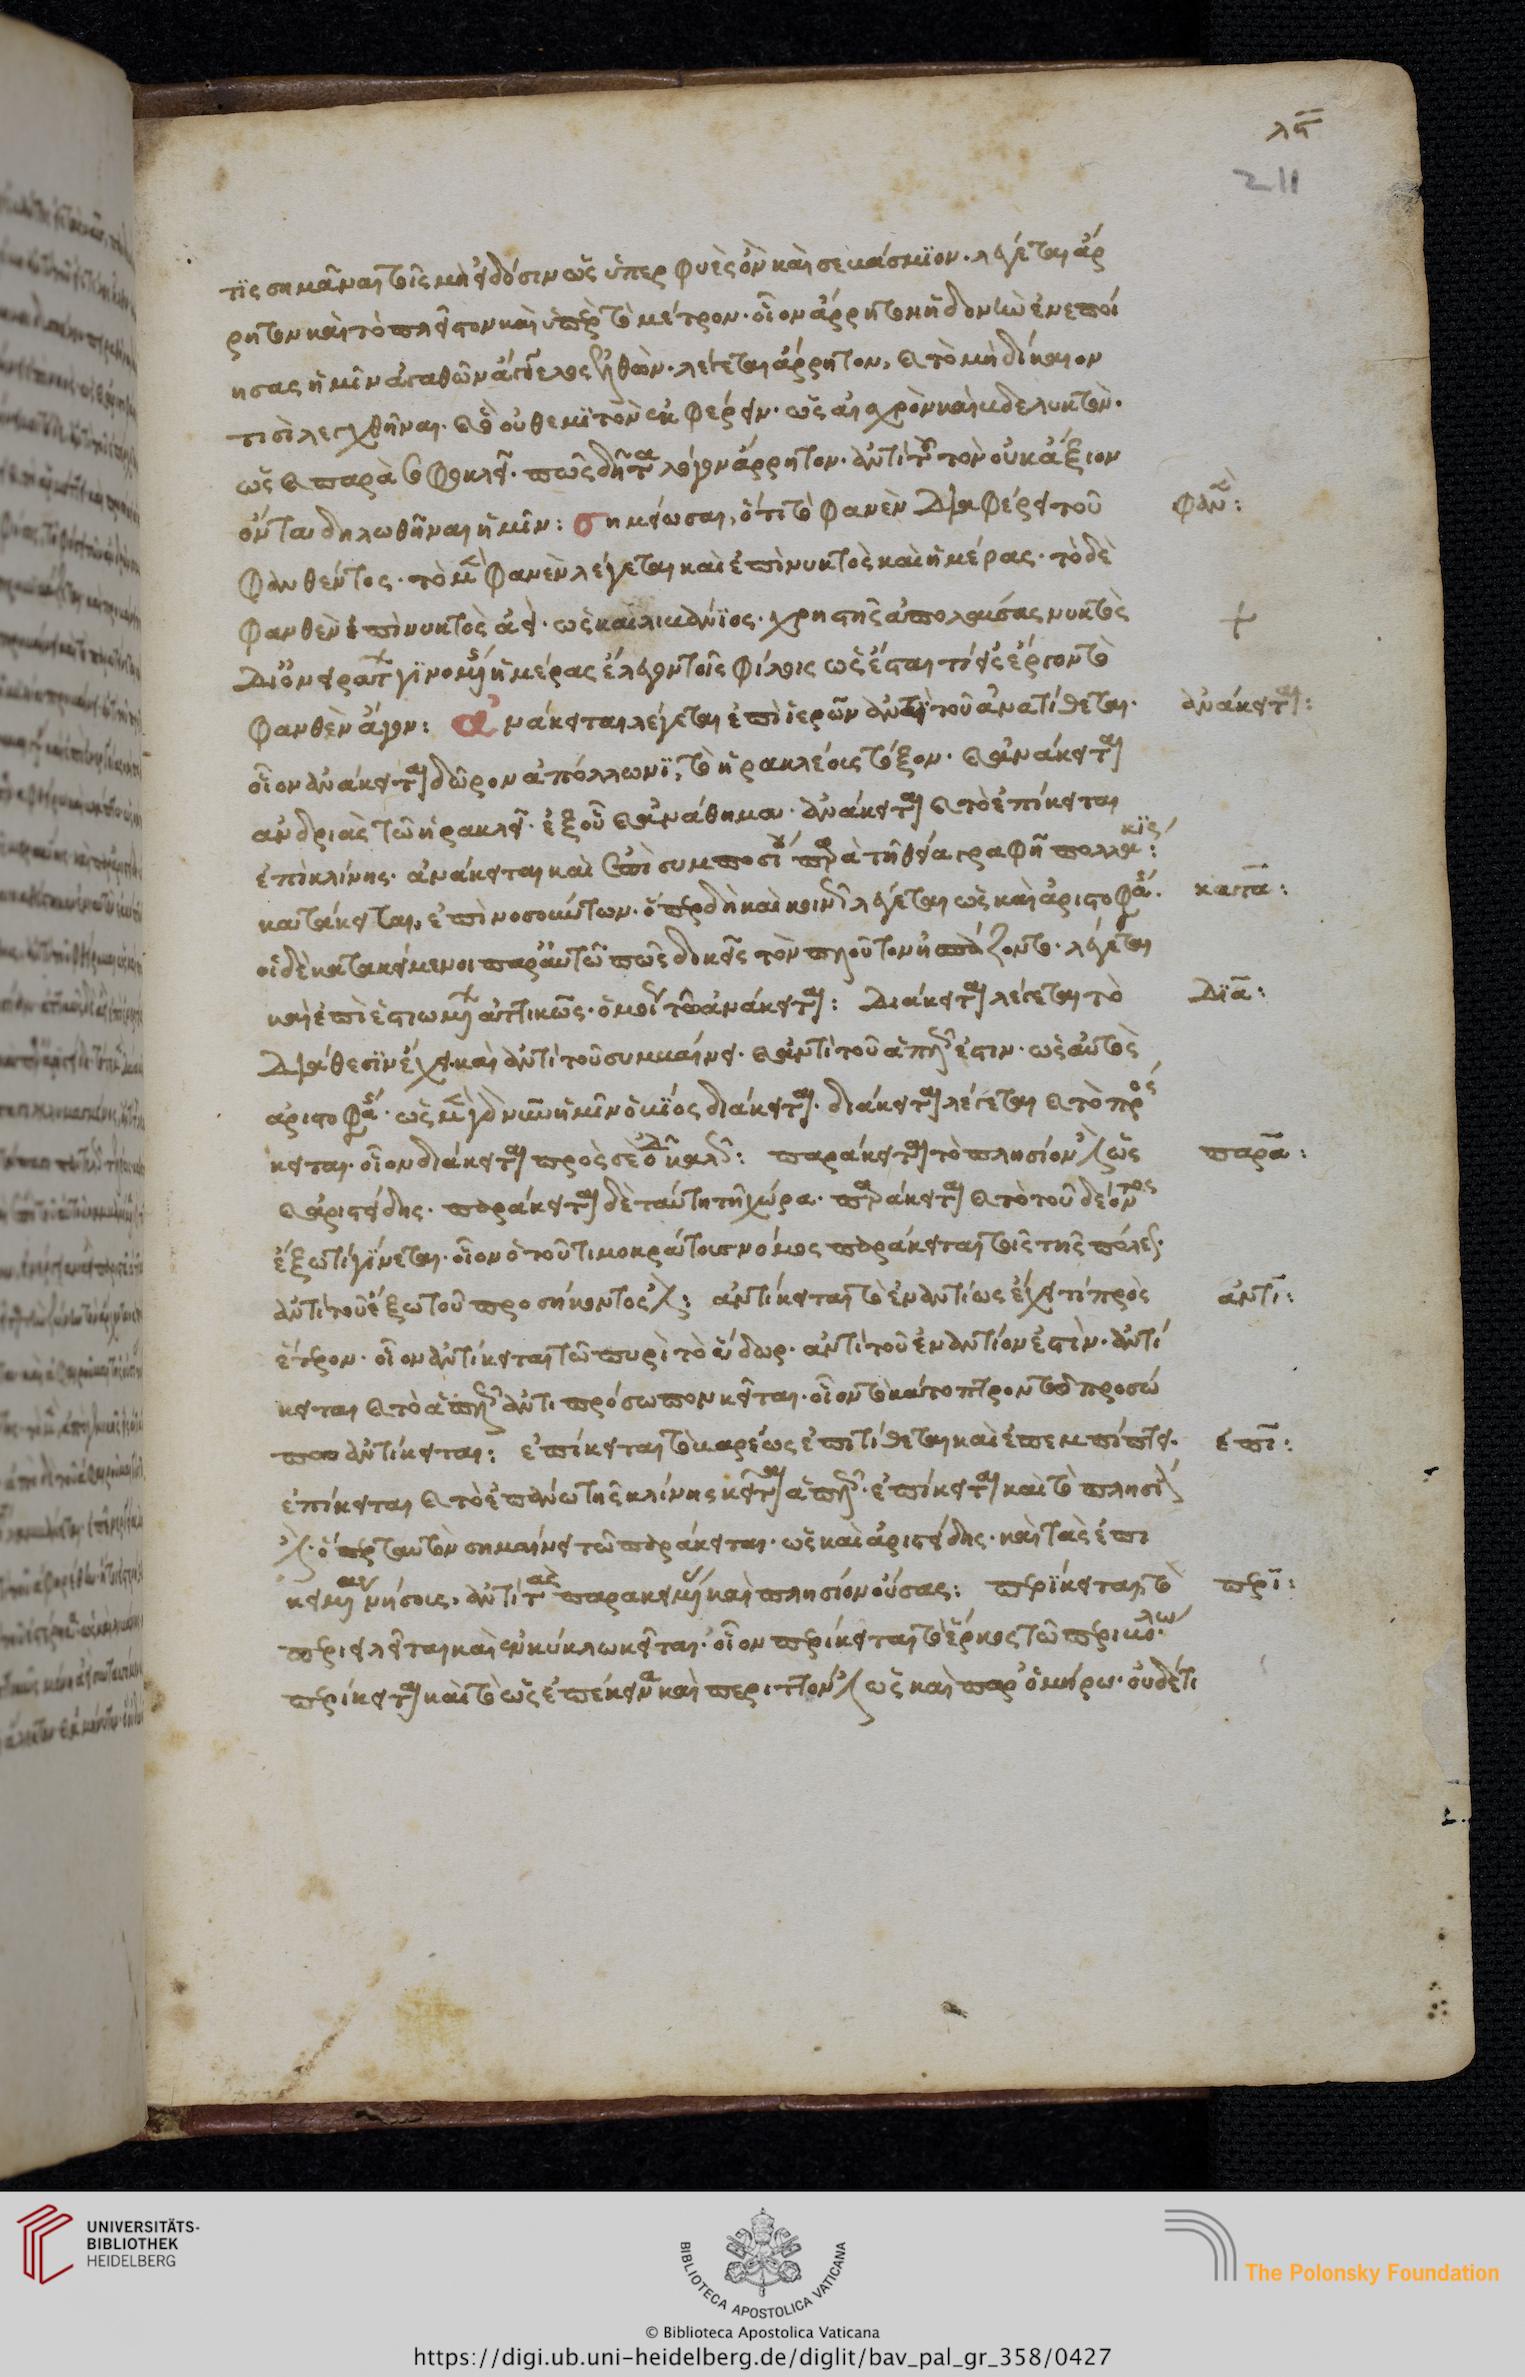 λϛ
211
τις σημᾶναι τοῖς μὴ εἰδόσιν ὡς ὑπερφυὲς ὂν καὶ σεβάσμιον. λέγεται ἄρ
ρητον καὶ τὸ πλεῖστον καὶ ὑπὲρ τὸ μέτρον. οἷον ἄρρητον ἡδονὴν ἐνεποί
ησας ἡμῖν ἀγαθῶν ἄγγελος ἐλθών. λέγεται ἄρρητον, καὶ τὸ μὴ δίκαιον
τισὶ λεχθῆναι. καὶ ὃ οὐ θεμιτὸν ἐκφέρειν. ὡς αἰσχρὸν καὶ βδελυκτόν.
ὡς καὶ παρὰ σοφοκλεῖ. πῶς δῆτα λόγον ἄρρητον. ἀντὶ τοῦ τὸν οὐκ ἄξιον
ὄντα δηλωθῆναι ἡμῖν: σημείωσαι, ὅτι τὸ φανὲν διαφέρει τοῦ
φανθέντος. τὸ μὲν φανὲν λέγεται καὶ ἐπὶ νυκτὸς καὶ ἡμέρας. τὸ δὲ
φανθὲν ἐπὶ νυκτὸς ἀεί. ὡς καὶ λιβάνιος. χρηστῆς ἀπολαύσας νυκτὸς
δι' ὀνειράτων γινομένης ἡμέρας ἔλεγον τοῖς φίλοις ὡς ἔσται τί εἰς ἔργον τὸ
φανθὲν ἄγον: ἀνάκειται λέγεται ἐπὶ ἱερῶν ἀντὶ τοῦ ἀνατίθεται.
οἷον ἀνάκειται δῶρον ἀπόλλωνι, τὸ ἡρακλέους τόξον. καὶ ἀνάκειται
ανδριὰς τῶ ἡρακλεῖ. ἐξ οὗ καὶ ἀνάθημα. ἀνάκειται καὶ τὸ ἐπίκειται
ἐπὶ κλίνης. ἀνάκειται καὶ ἐπὶ συμποσίου παρὰ τῆ θεία γραφῆ πολλάκις:
κατάκειται, ἐπὶ νοσούντων. ὅπερ δὴ καὶ κοινῶς λέγεται ὡς καὶ ἀριστοφάνης.
οἱ δὲ κατακείμενοι παρ' αὐτῶ πῶς δοκεῖς τὸν πλοῦτον ἠσπάζοντο. λέγεται
καὶ ἐπὶ ἑστιωμένων ἀττικῶς. ὁμοίως τῶ ἀνάκειται: Διάκειται λέγεται τὸ
διάθεσιν ἔχει. καὶ ἀντὶ τοῦ συμβαίνει. καὶ ἀντὶ τοῦ ἁπλῶς ἐστιν. ὡς αὐτὸς
ἀριστοφάνης. ὡς μὲν γὰρ νῦν ἡμῖν ὁ βίος διάκειται. διάκειται λέγεται καὶ τὸ πρὸς
κειται. οἷον διάκειται πρὸς σὲ ὁ δεῖνα καλῶς: παράκειται τὸ πλησίον ἐστὶν ὡς
καὶ ἀριστείδης. παράκειται δὲ ταύτη τῆ χώρα. παράκειται καὶ τὸ τοῦ δέοντος
ἔξω τί γίνεται. οἷον ὁ τοῦ τιμοκράτους νόμος παράκειται τοῖς τῆς πόλεως.
ἀντὶ τοῦ ἔξω τοῦ προσήκοντος ἐστίν: ἀντίκειται τὸ ἐναντίως ἔχει τί πρὸς
ἕτερον. οἷον ἀντίκειται τῶ πυρὶ τὸ ὕδωρ. ἀντὶ τοῦ ἐναντίον ἐστίν. ἀντί
κειται καὶ τὸ ἁπλῶς ἀντιπρόσωπον κεῖται. οἷον τὸ κάτοπτρον τῶ προσώ
πω ἀντίκειται: ἐπίκειται τὸ βαρέως ἐπιτίθεται καὶ ἐπεμπίπτει.
ἐπίκειται καὶ τὸ ἐπάνω τῆς κλίνης κεῖται ἁπλῶς. ἐπίκειται καὶ τὸ πλησίον
ἐστίν. ὅπερ ταυτὸν σημαίνει τῶ παράκειται. ὡς καὶ ἀριστείδης. καὶ τὰς ἐπι
κειμένας νήσους, ἀντὶ τὰς παρακειμένας καὶ πλησίον οὔσας: περίκειται, τὸ
περιειλεῖται καὶ ἐν κύκλω κεῖται. οἷον περίκειται τὸ ἕρκος τῶ περιβόλω.
περίκειται καὶ τὸ ὡς ἐπέκεινα καὶ περιττόν ἐστιν ὡς καὶ παρ' ὁμήρω. οὐδέ τι
φαν:
ἀνάκειται:
κατα:
Δια:
παρα:
ἀντι:
ἐπι:
περι:
UNIVERSITÄTS-
BIBLIOTHEK
HEIDELBERG
BIBLIOTECA APOSTOLICA VATICANA
The Polonsky Foundation
© Biblioteca Apostolica Vaticana
https://digi.ub.uni-heidelberg.de/diglit/bav_pal_gr_358/0427